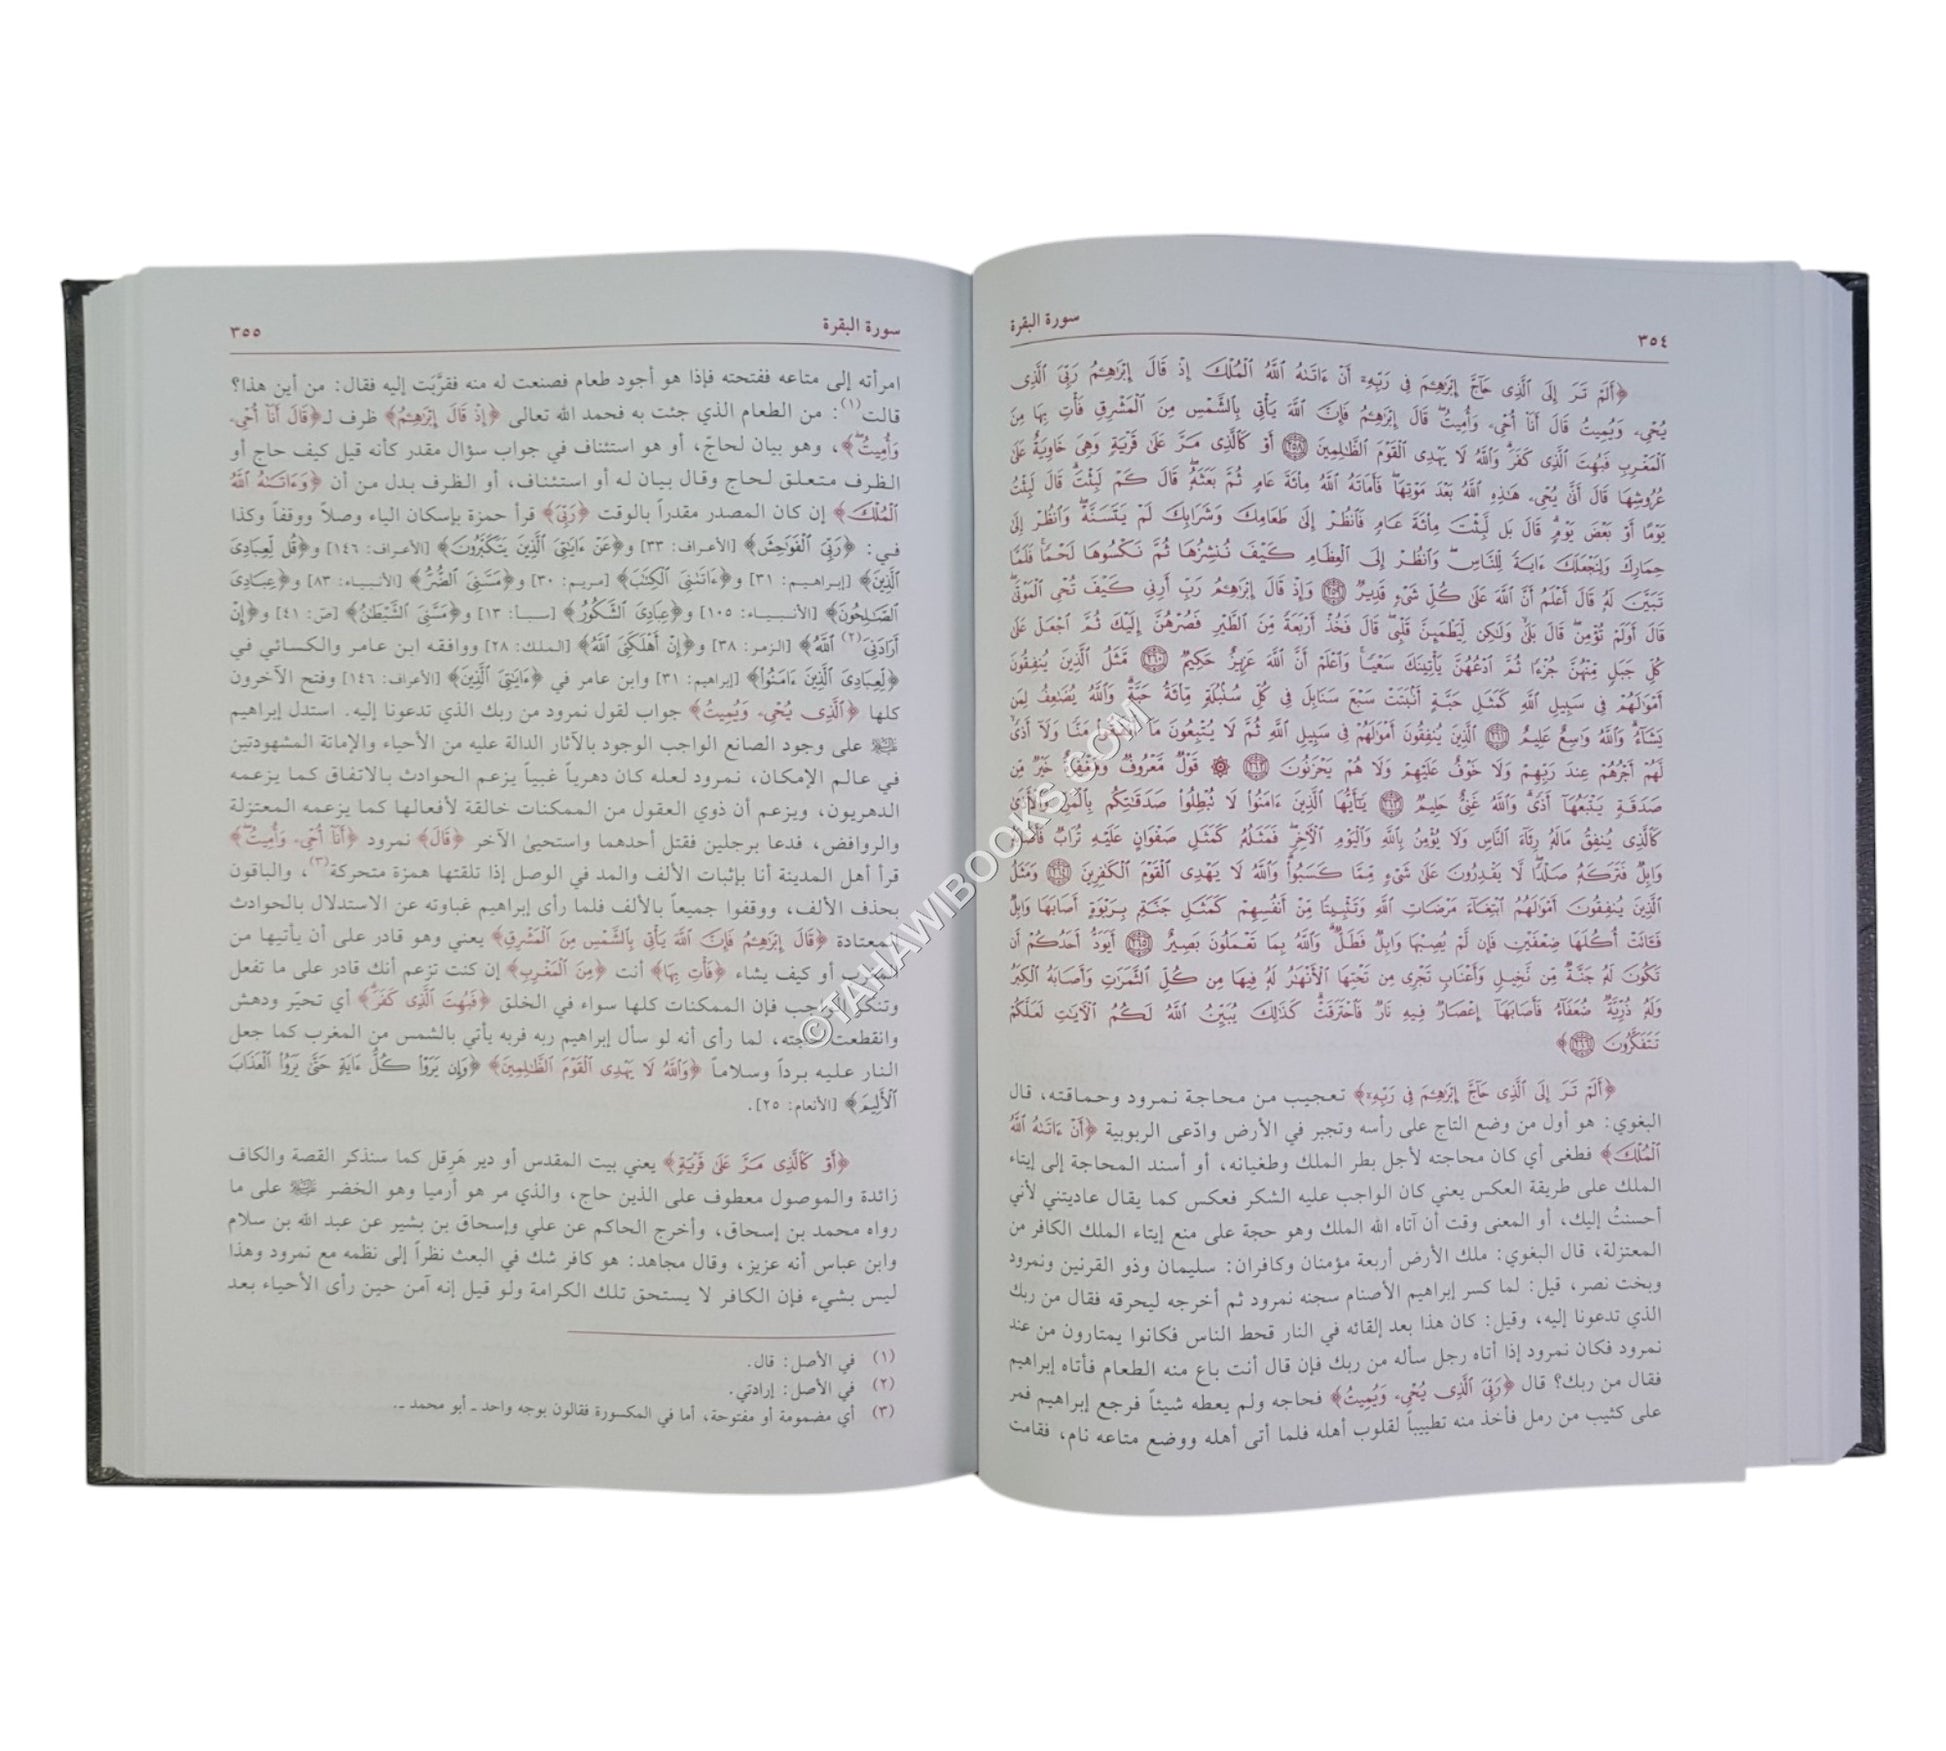 ٣٥٤ سورة البقرة
﴿أَلَمْ تَرَ إِلَى ٱلَّذِى حَآجَّ إِبْرَٰهِـۧمَ فِى رَبِّهِۦٓ أَنْ ءَاتَىٰهُ ٱللَّهُ ٱلْمُلْكَ إِذْ قَالَ إِبْرَٰهِـۧمُ رَبِّىَ ٱلَّذِى
يُحْىِۦ وَيُمِيتُ قَالَ أَنَا۠ أُحْىِۦ وَأُمِيتُ ۖ قَالَ إِبْرَٰهِـۧمُ فَإِنَّ ٱللَّهَ يَأْتِى بِٱلشَّمْسِ مِنَ ٱلْمَشْرِقِ فَأْتِ بِهَا مِنَ
ٱلْمَغْرِبِ فَبُهِتَ ٱلَّذِى كَفَرَ ۗ وَٱللَّهُ لَا يَهْدِى ٱلْقَوْمَ ٱلظَّٰلِمِينَ ٢٥٨ أَوْ كَٱلَّذِى مَرَّ عَلَىٰ قَرْيَةٍ وَهِىَ خَاوِيَةٌ عَلَىٰ
عُرُوشِهَا قَالَ أَنَّىٰ يُحْىِۦ هَٰذِهِ ٱللَّهُ بَعْدَ مَوْتِهَا ۖ فَأَمَاتَهُ ٱللَّهُ مِا۟ئَةَ عَامٍ ثُمَّ بَعَثَهُۥ ۖ قَالَ كَمْ لَبِثْتَ ۖ قَالَ لَبِثْتُ
يَوْمًا أَوْ بَعْضَ يَوْمٍ ۖ قَالَ بَل لَّبِثْتَ مِا۟ئَةَ عَامٍ فَٱنظُرْ إِلَىٰ طَعَامِكَ وَشَرَابِكَ لَمْ يَتَسَنَّهْ ۖ وَٱنظُرْ إِلَىٰ
حِمَارِكَ وَلِنَجْعَلَكَ ءَايَةً لِّلنَّاسِ ۖ وَٱنظُرْ إِلَى ٱلْعِظَامِ كَيْفَ نُنشِزُهَا ثُمَّ نَكْسُوهَا لَحْمًا ۚ فَلَمَّا
تَبَيَّنَ لَهُۥ قَالَ أَعْلَمُ أَنَّ ٱللَّهَ عَلَىٰ كُلِّ شَىْءٍ قَدِيرٌ ٢٥٩ وَإِذْ قَالَ إِبْرَٰهِـۧمُ رَبِّ أَرِنِى كَيْفَ تُحْىِ ٱلْمَوْتَىٰ ۖ
قَالَ أَوَلَمْ تُؤْمِن ۖ قَالَ بَلَىٰ وَلَٰكِن لِّيَطْمَئِنَّ قَلْبِى ۖ قَالَ فَخُذْ أَرْبَعَةً مِّنَ ٱلطَّيْرِ فَصُرْهُنَّ إِلَيْكَ ثُمَّ ٱجْعَلْ عَلَىٰ
كُلِّ جَبَلٍ مِّنْهُنَّ جُزْءًا ثُمَّ ٱدْعُهُنَّ يَأْتِينَكَ سَعْيًا ۚ وَٱعْلَمْ أَنَّ ٱللَّهَ عَزِيزٌ حَكِيمٌ ٢٦٠ مَّثَلُ ٱلَّذِينَ يُنفِقُونَ
أَمْوَٰلَهُمْ فِى سَبِيلِ ٱللَّهِ كَمَثَلِ حَبَّةٍ أَنۢبَتَتْ سَبْعَ سَنَابِلَ فِى كُلِّ سُنۢبُلَةٍ مِّا۟ئَةُ حَبَّةٍ ۗ وَٱللَّهُ يُضَٰعِفُ لِمَن
يَشَآءُ ۗ وَٱللَّهُ وَٰسِعٌ عَلِيمٌ ٢٦١ ٱلَّذِينَ يُنفِقُونَ أَمْوَٰلَهُمْ فِى سَبِيلِ ٱللَّهِ ثُمَّ لَا يُتْبِعُونَ مَآ أَنفَقُوا۟ مَنًّا وَلَآ أَذًى ۙ
لَّهُمْ أَجْرُهُمْ عِندَ رَبِّهِمْ وَلَا خَوْفٌ عَلَيْهِمْ وَلَا هُمْ يَحْزَنُونَ ٢٦٢ ۞ قَوْلٌ مَّعْرُوفٌ وَمَغْفِرَةٌ خَيْرٌ مِّن
صَدَقَةٍ يَتْبَعُهَآ أَذًى ۗ وَٱللَّهُ غَنِىٌّ حَلِيمٌ ٢٦٣ يَٰٓأَيُّهَا ٱلَّذِينَ ءَامَنُوا۟ لَا تُبْطِلُوا۟ صَدَقَٰتِكُم بِٱلْمَنِّ وَٱلْأَذَىٰ
كَٱلَّذِى يُنفِقُ مَالَهُۥ رِئَآءَ ٱلنَّاسِ وَلَا يُؤْمِنُ بِٱللَّهِ وَٱلْيَوْمِ ٱلْءَاخِرِ ۖ فَمَثَلُهُۥ كَمَثَلِ صَفْوَانٍ عَلَيْهِ تُرَابٌ فَأَصَابَهُۥ
وَابِلٌ فَتَرَكَهُۥ صَلْدًا ۖ لَّا يَقْدِرُونَ عَلَىٰ شَىْءٍ مِّمَّا كَسَبُوا۟ ۗ وَٱللَّهُ لَا يَهْدِى ٱلْقَوْمَ ٱلْكَٰفِرِينَ ٢٦٤ وَمَثَلُ
ٱلَّذِينَ يُنفِقُونَ أَمْوَٰلَهُمُ ٱبْتِغَآءَ مَرْضَاتِ ٱللَّهِ وَتَثْبِيتًا مِّنْ أَنفُسِهِمْ كَمَثَلِ جَنَّةٍۭ بِرَبْوَةٍ أَصَابَهَا وَابِلٌ
فَـَٔاتَتْ أُكُلَهَا ضِعْفَيْنِ فَإِن لَّمْ يُصِبْهَا وَابِلٌ فَطَلٌّ ۗ وَٱللَّهُ بِمَا تَعْمَلُونَ بَصِيرٌ ٢٦٥ أَيَوَدُّ أَحَدُكُمْ أَن
تَكُونَ لَهُۥ جَنَّةٌ مِّن نَّخِيلٍ وَأَعْنَابٍ تَجْرِى مِن تَحْتِهَا ٱلْأَنْهَٰرُ لَهُۥ فِيهَا مِن كُلِّ ٱلثَّمَرَٰتِ وَأَصَابَهُ ٱلْكِبَرُ
وَلَهُۥ ذُرِّيَّةٌ ضُعَفَآءُ فَأَصَابَهَآ إِعْصَارٌ فِيهِ نَارٌ فَٱحْتَرَقَتْ ۗ كَذَٰلِكَ يُبَيِّنُ ٱللَّهُ لَكُمُ ٱلْءَايَٰتِ لَعَلَّكُمْ
تَتَفَكَّرُونَ ٢٦٦﴾
﴿أَلَمْ تَرَ إِلَى ٱلَّذِى حَآجَّ إِبْرَٰهِـۧمَ فِى رَبِّهِۦٓ﴾ تعجيب من محاجة نمرود وحماقته، قال
البغوي: هو أول من وضع التاج على رأسه وتجبر في الأرض وادّعى الربوبية ﴿أَنْ ءَاتَىٰهُ ٱللَّهُ
ٱلْمُلْكَ﴾ فطغى أي كان محاجته لأجل بطر الملك وطغيانه، أو أسند المحاجة إلى إيتاء
الملك على طريقة العكس يعني كان الواجب عليه الشكر فعكس كما يقال عاديتني لأني
أحسنتُ إليك، أو المعنى وقت أن آتاه الله الملك وهو حجة على منع إيتاء الملك الكافر من
المعتزلة، قال البغوي: ملك الأرض أربعة مؤمنان وكافران: سليمان وذو القرنين ونمرود
وبخت نصر، قيل: لما كسر إبراهيم الأصنام سجنه نمرود ثم أخرجه ليحرقه فقال من ربك
الذي تدعونا إليه، وقيل: كان هذا بعد إلقائه في النار قحط الناس فكانوا يمتارون من عند
نمرود فكان نمرود إذا أتاه رجل سأله من ربك فإن قال أنت باع منه الطعام فأتاه إبراهيم
فقال من ربك؟ قال ﴿رَبِّىَ ٱلَّذِى يُحْىِۦ وَيُمِيتُ﴾ فحاجه ولم يعطه شيئاً فرجع إبراهيم فمر
على كثيب من رمل فأخذ منه تطييباً لقلوب أهله فلما أتى أهله ووضع متاعه نام، فقامت
سورة البقرة ٣٥٥
امرأته إلى متاعه ففتحته فإذا هو أجود طعام فصنعت له منه فقرَّبَت إليه فقال: من أين هذا؟
قالت(١): من الطعام الذي جئت به فحمد الله تعالى ﴿إِذْ قَالَ إِبْرَٰهِـۧمُ﴾ ظرف لـ﴿قَالَ أَنَا۠ أُحْىِۦ
وَأُمِيتُ ۖ﴾، وهو بيان لحاجّ، أو هو استئناف في جواب سؤال مقدر كأنه قيل كيف حاج أو
الظرف متعلق لحاج وقال بيان له أو استئناف، أو الظرف بدل من أن ﴿وَءَاتَىٰهُ ٱللَّهُ
ٱلْمُلْكَ﴾ إن كان المصدر مقدراً بالوقت ﴿رَبِّىَ﴾ قرأ حمزة بإسكان الياء وصلاً ووقفاً وكذا
في: ﴿رَبِّىَ ٱلْفَوَٰحِشَ﴾ [الأعراف: ٣٣] و﴿عَنْ ءَايَٰتِىَ ٱلَّذِينَ يَتَكَبَّرُونَ﴾ [الأعراف: ١٤٦] و﴿قُل لِّعِبَادِىَ
ٱلَّذِينَ﴾ [إبراهيم: ٣١] و﴿ءَاتَىٰنِىَ ٱلْكِتَٰبَ﴾ [مريم: ٣٠] و﴿مَسَّنِىَ ٱلضُّرُّ﴾ [الأنبياء: ٨٣] و﴿عِبَادِىَ
ٱلصَّٰلِحُونَ﴾ [الأنبياء: ١٠٥] و﴿عِبَادِىَ ٱلشَّكُورُ﴾ [سبأ: ١٣] و﴿مَسَّنِىَ ٱلشَّيْطَٰنُ﴾ [صّ: ٤١] و﴿إِنْ
أَرَادَنِىَ(٢) ٱللَّهُ﴾ [الزمر: ٣٨] و﴿إِنْ أَهْلَكَنِىَ ٱللَّهُ﴾ [الملك: ٢٨] ووافقه ابن عامر والكسائي في
﴿لِّعِبَادِىَ ٱلَّذِينَ ءَامَنُوا۟﴾ [إبراهيم: ٣١] وابن عامر في ﴿ءَايَٰتِىَ ٱلَّذِينَ﴾ [الأعراف: ١٤٦] وفتح الآخرون
كلها ﴿ٱلَّذِى يُحْىِۦ وَيُمِيتُ﴾ جواب لقول نمرود من ربك الذي تدعونا إليه. استدل إبراهيم
على وجود الصانع الواجب الوجود بالآثار الدالة عليه من الأحياء والإماتة المشهودتين
في عالم الإمكان، نمرود لعله كان دهرياً غبياً يزعم الحوادث بالاتفاق كما يزعمه
الدهريون، ويزعم أن ذوي العقول من الممكنات خالقة لأفعالها كما يزعمه المعتزلة
والروافض، فدعا برجلين فقتل أحدهما واستحيىٰ الآخر ﴿قَالَ﴾ نمرود ﴿أَنَا۠ أُحْىِۦ وَأُمِيتُ ۖ﴾
قرأ أهل المدينة أنا بإثبات الألف والمد في الوصل إذا تلقتها همزة متحركة(٣)، والباقون
بحذف الألف، ووقفوا جميعاً بالألف فلما رأى إبراهيم غباوته عن الاستدلال بالحوادث
المعتادة ﴿قَالَ إِبْرَٰهِـۧمُ فَإِنَّ ٱللَّهَ يَأْتِى بِٱلشَّمْسِ مِنَ ٱلْمَشْرِقِ﴾ يعني وهو قادر على أن يأتيها من
المغرب أو كيف يشاء ﴿فَأْتِ بِهَا﴾ أنت ﴿مِنَ ٱلْمَغْرِبِ﴾ إن كنت تزعم أنك قادر على ما تفعل
وتنكر فإن الممكنات كلها سواء في الخلق ﴿فَبُهِتَ ٱلَّذِى كَفَرَ ۗ﴾ أي تحيّر ودهش
وانقطعت حجته، لما رأى أنه لو سأل إبراهيم ربه فربه يأتي بالشمس من المغرب كما جعل
النار عليه برداً وسلاماً ﴿وَٱللَّهُ لَا يَهْدِى ٱلْقَوْمَ ٱلظَّٰلِمِينَ﴾ ﴿وَإِن يَرَوْا۟ كُلَّ ءَايَةٍ حَتَّىٰ يَرَوُا۟ ٱلْعَذَابَ
ٱلْأَلِيمَ﴾ [الأنعام: ٢٥].
﴿أَوْ كَٱلَّذِى مَرَّ عَلَىٰ قَرْيَةٍ﴾ يعني بيت المقدس أو دير هَرِقل كما سنذكر القصة والكاف
زائدة والموصول معطوف على الذين حاج، والذي مر هو أرميا وهو الخضر على ما
رواه محمد بن إسحاق، وأخرج الحاكم عن علي وإسحاق بن بشير عن عبد الله بن سلام
وابن عباس أنه عزيز، وقال مجاهد: هو كافر شك في البعث نظراً إلى نظمه مع نمرود وهذا
ليس بشيء فإن الكافر لا يستحق تلك الكرامة ولو قيل إنه آمن حين رأى الأحياء بعد
(١) في الأصل: قال.
(٢) في الأصل: إرادتي.
(٣) أي مضمومة أو مفتوحة، أما في المكسورة فقالون بوجه واحد ـ أبو محمد ـ.
©TAHAWIBOOKS.COM